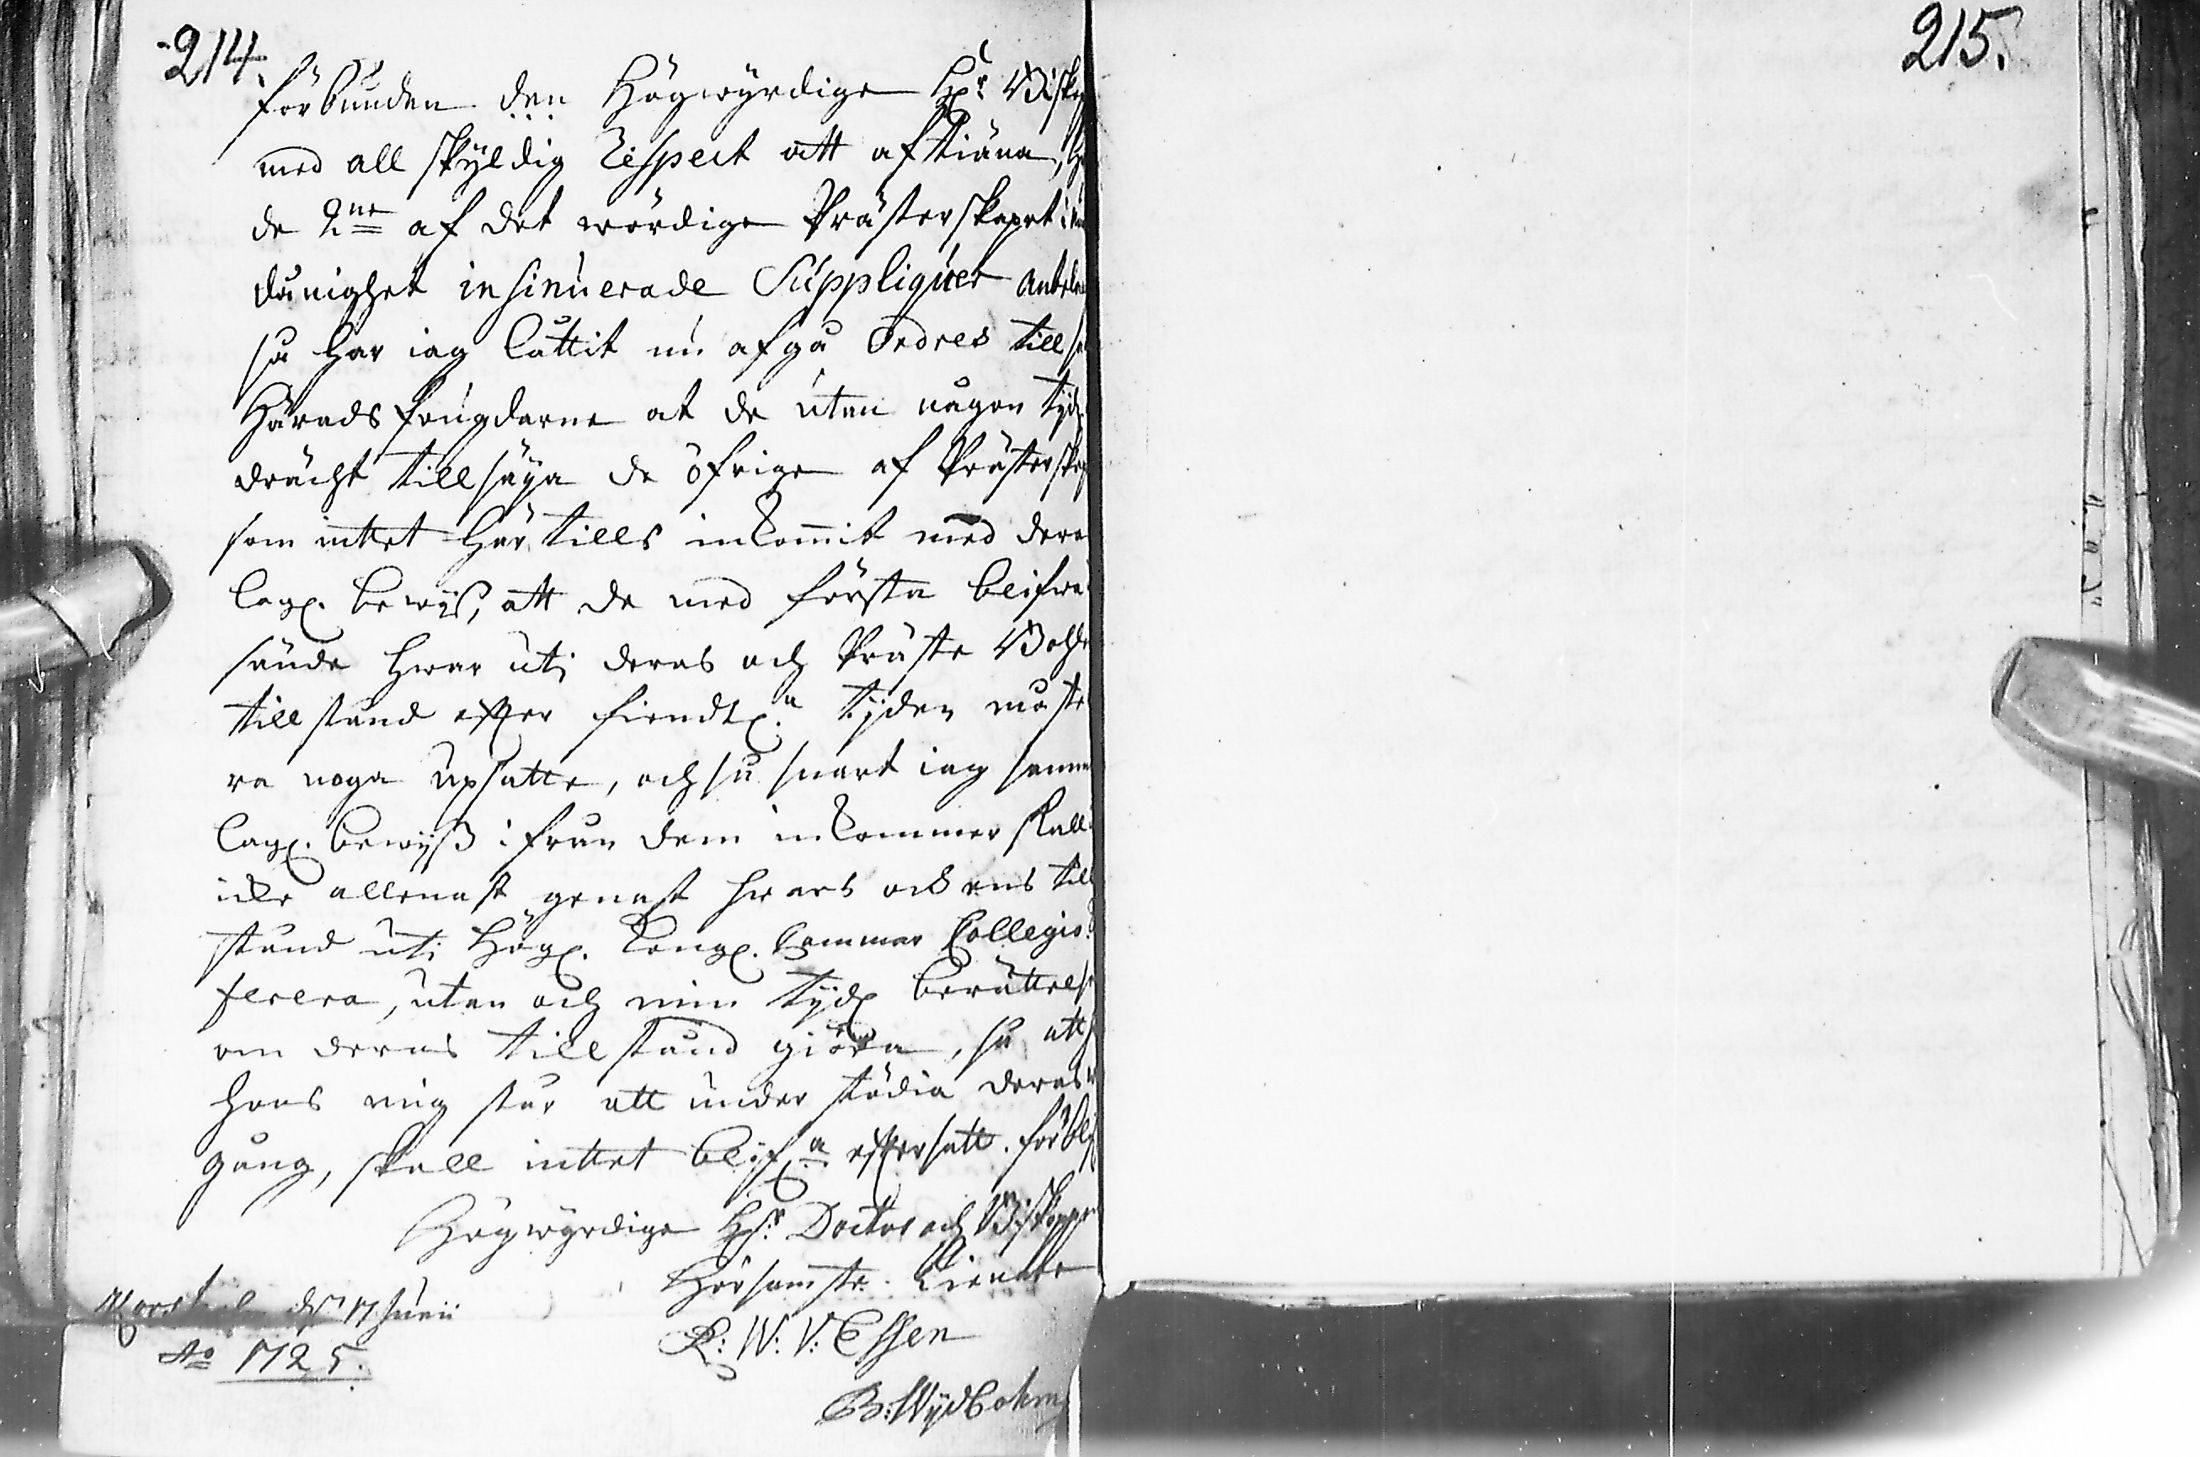 214.
förbunden den Högwyrdige H:r Bisko
med all skyldig Respect att aftiäna,
de 2ne af det wördige Prästerskapet i
dånighet insinuerade Suppliquer
så har iag låttit nu afgå Ordres till
Häradsfougdarne at de utan någon tijd
drächt tillsäya de öfrige af Prästerskap
som intet här tills inkommit med dera
lagl. bewijs, att de med första blifwa
sände hwar uti deras och Präste Bohlz
tillstånd effter fiendtl:a tijden måste
ra noga upsatte, och så snart iag samm
lagl. bewijß ifrån dem inkommer skall
icke allenast genast hwars och ens till
stånd uti Högl. Kongl. Cammar Collegio
ferera, utan och min tydl berättels
om deras tillstånd giöra, så att
hoos mig står att under stödia deras
gång, skall intet blifa effersatt. förblif
Högwyrdige H:r Doctor och Biskoppen
Hörsamste. Tienare
R: W: V: Essen
d. 17 Junii
Ao 1725.
B: Wijdbohm
215.